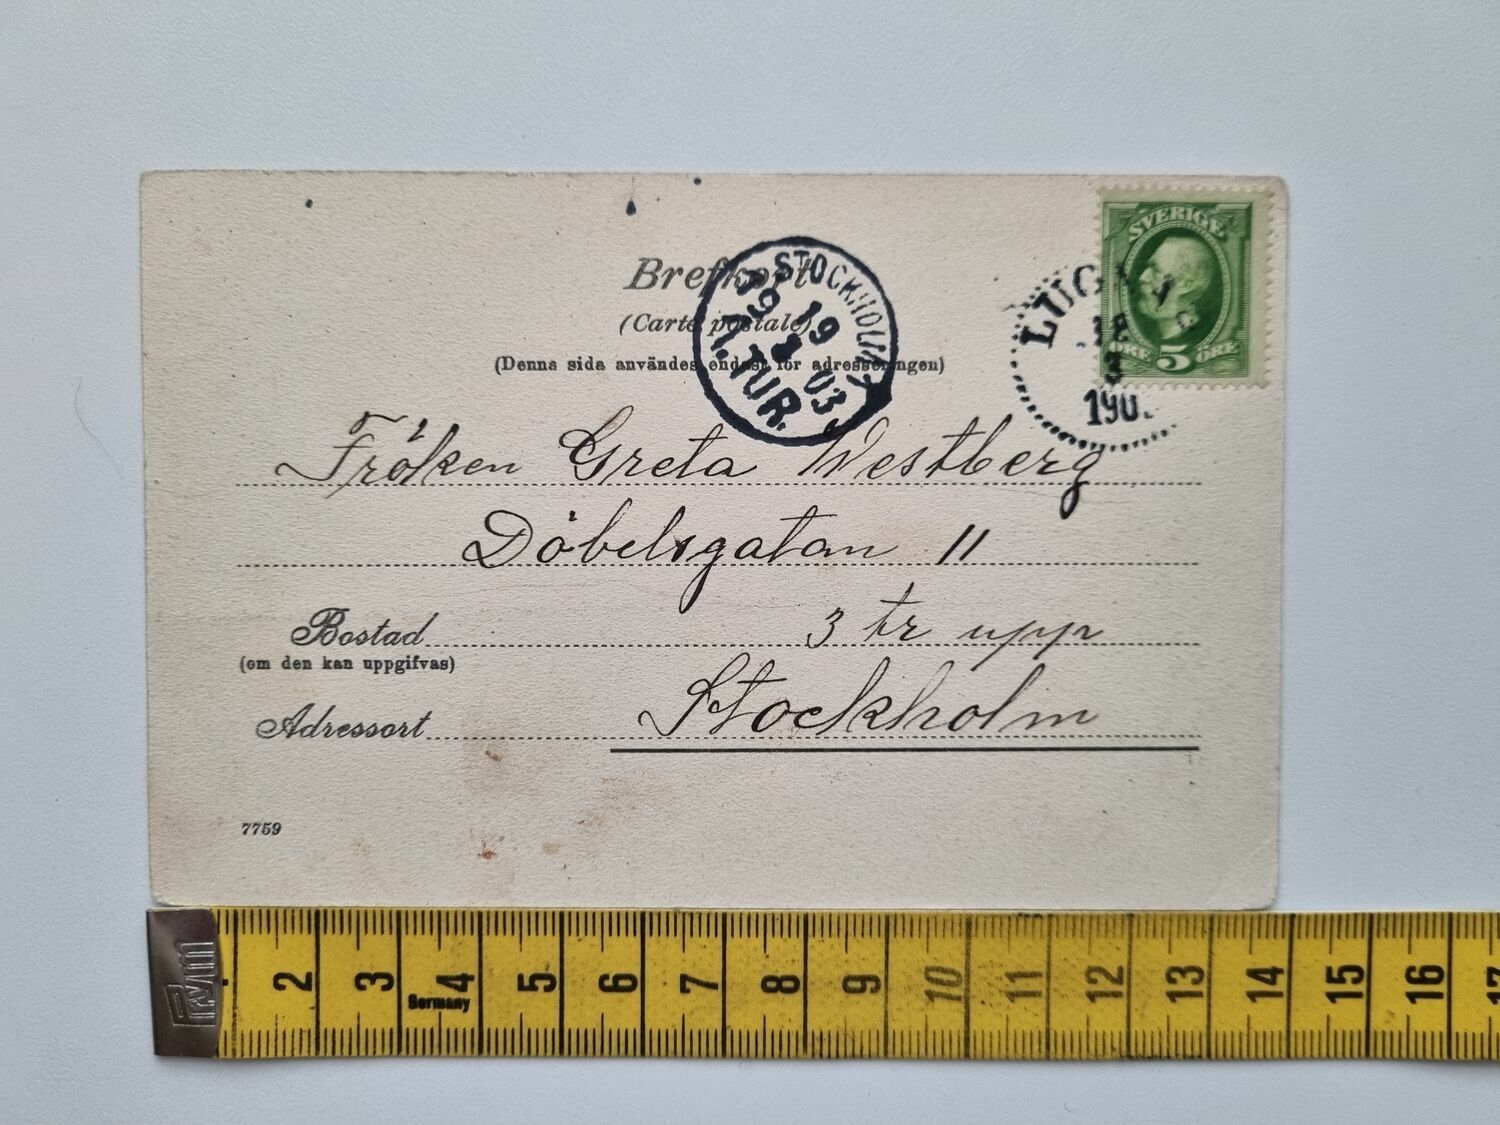 SVERIGE
ÖRE 5 ÖRE
Brefkort
(Carte postale)
(Denna sida användes endast för adresseringen)
STOCKHOLM
19
03
TUR.
18
3
190
Fröken Greta Westberg
Döbelsgatan 11
Bostad 3 tr upp
(om den kan uppgifvas)
Adressort Stockholm
7759
Prym
2 3 4 5 6 7 8 9 10 11 12 13 14 15 16 17
Germany